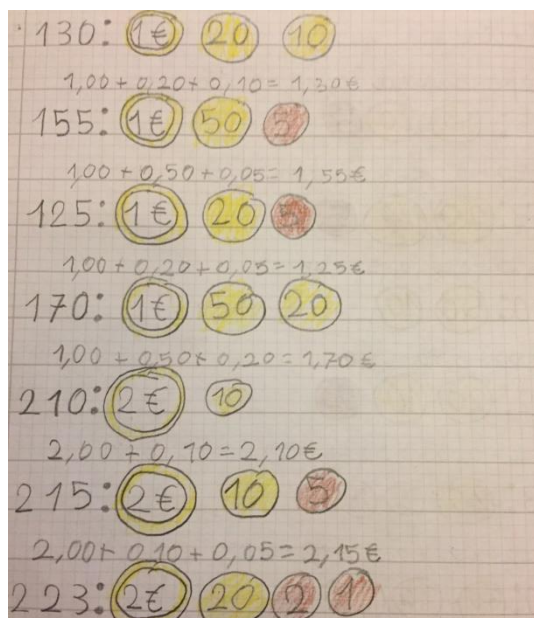 130: 1€ 20 10
1,00 + 0,20 + 0,10 = 1,30€
155: 1€ 50 5
1,00 + 0,50 + 0,05 = 1,55€
125: 1€ 20 5
1,00 + 0,20 + 0,05 = 1,25€
170: 1€ 50 20
1,00 + 0,50 + 0,20 = 1,70€
210: 2€ 10
2,00 + 0,10 = 2,10€
215: 2€ 10 5
2,00 + 0,10 + 0,05 = 2,15€
223: 2€ 20 2 1